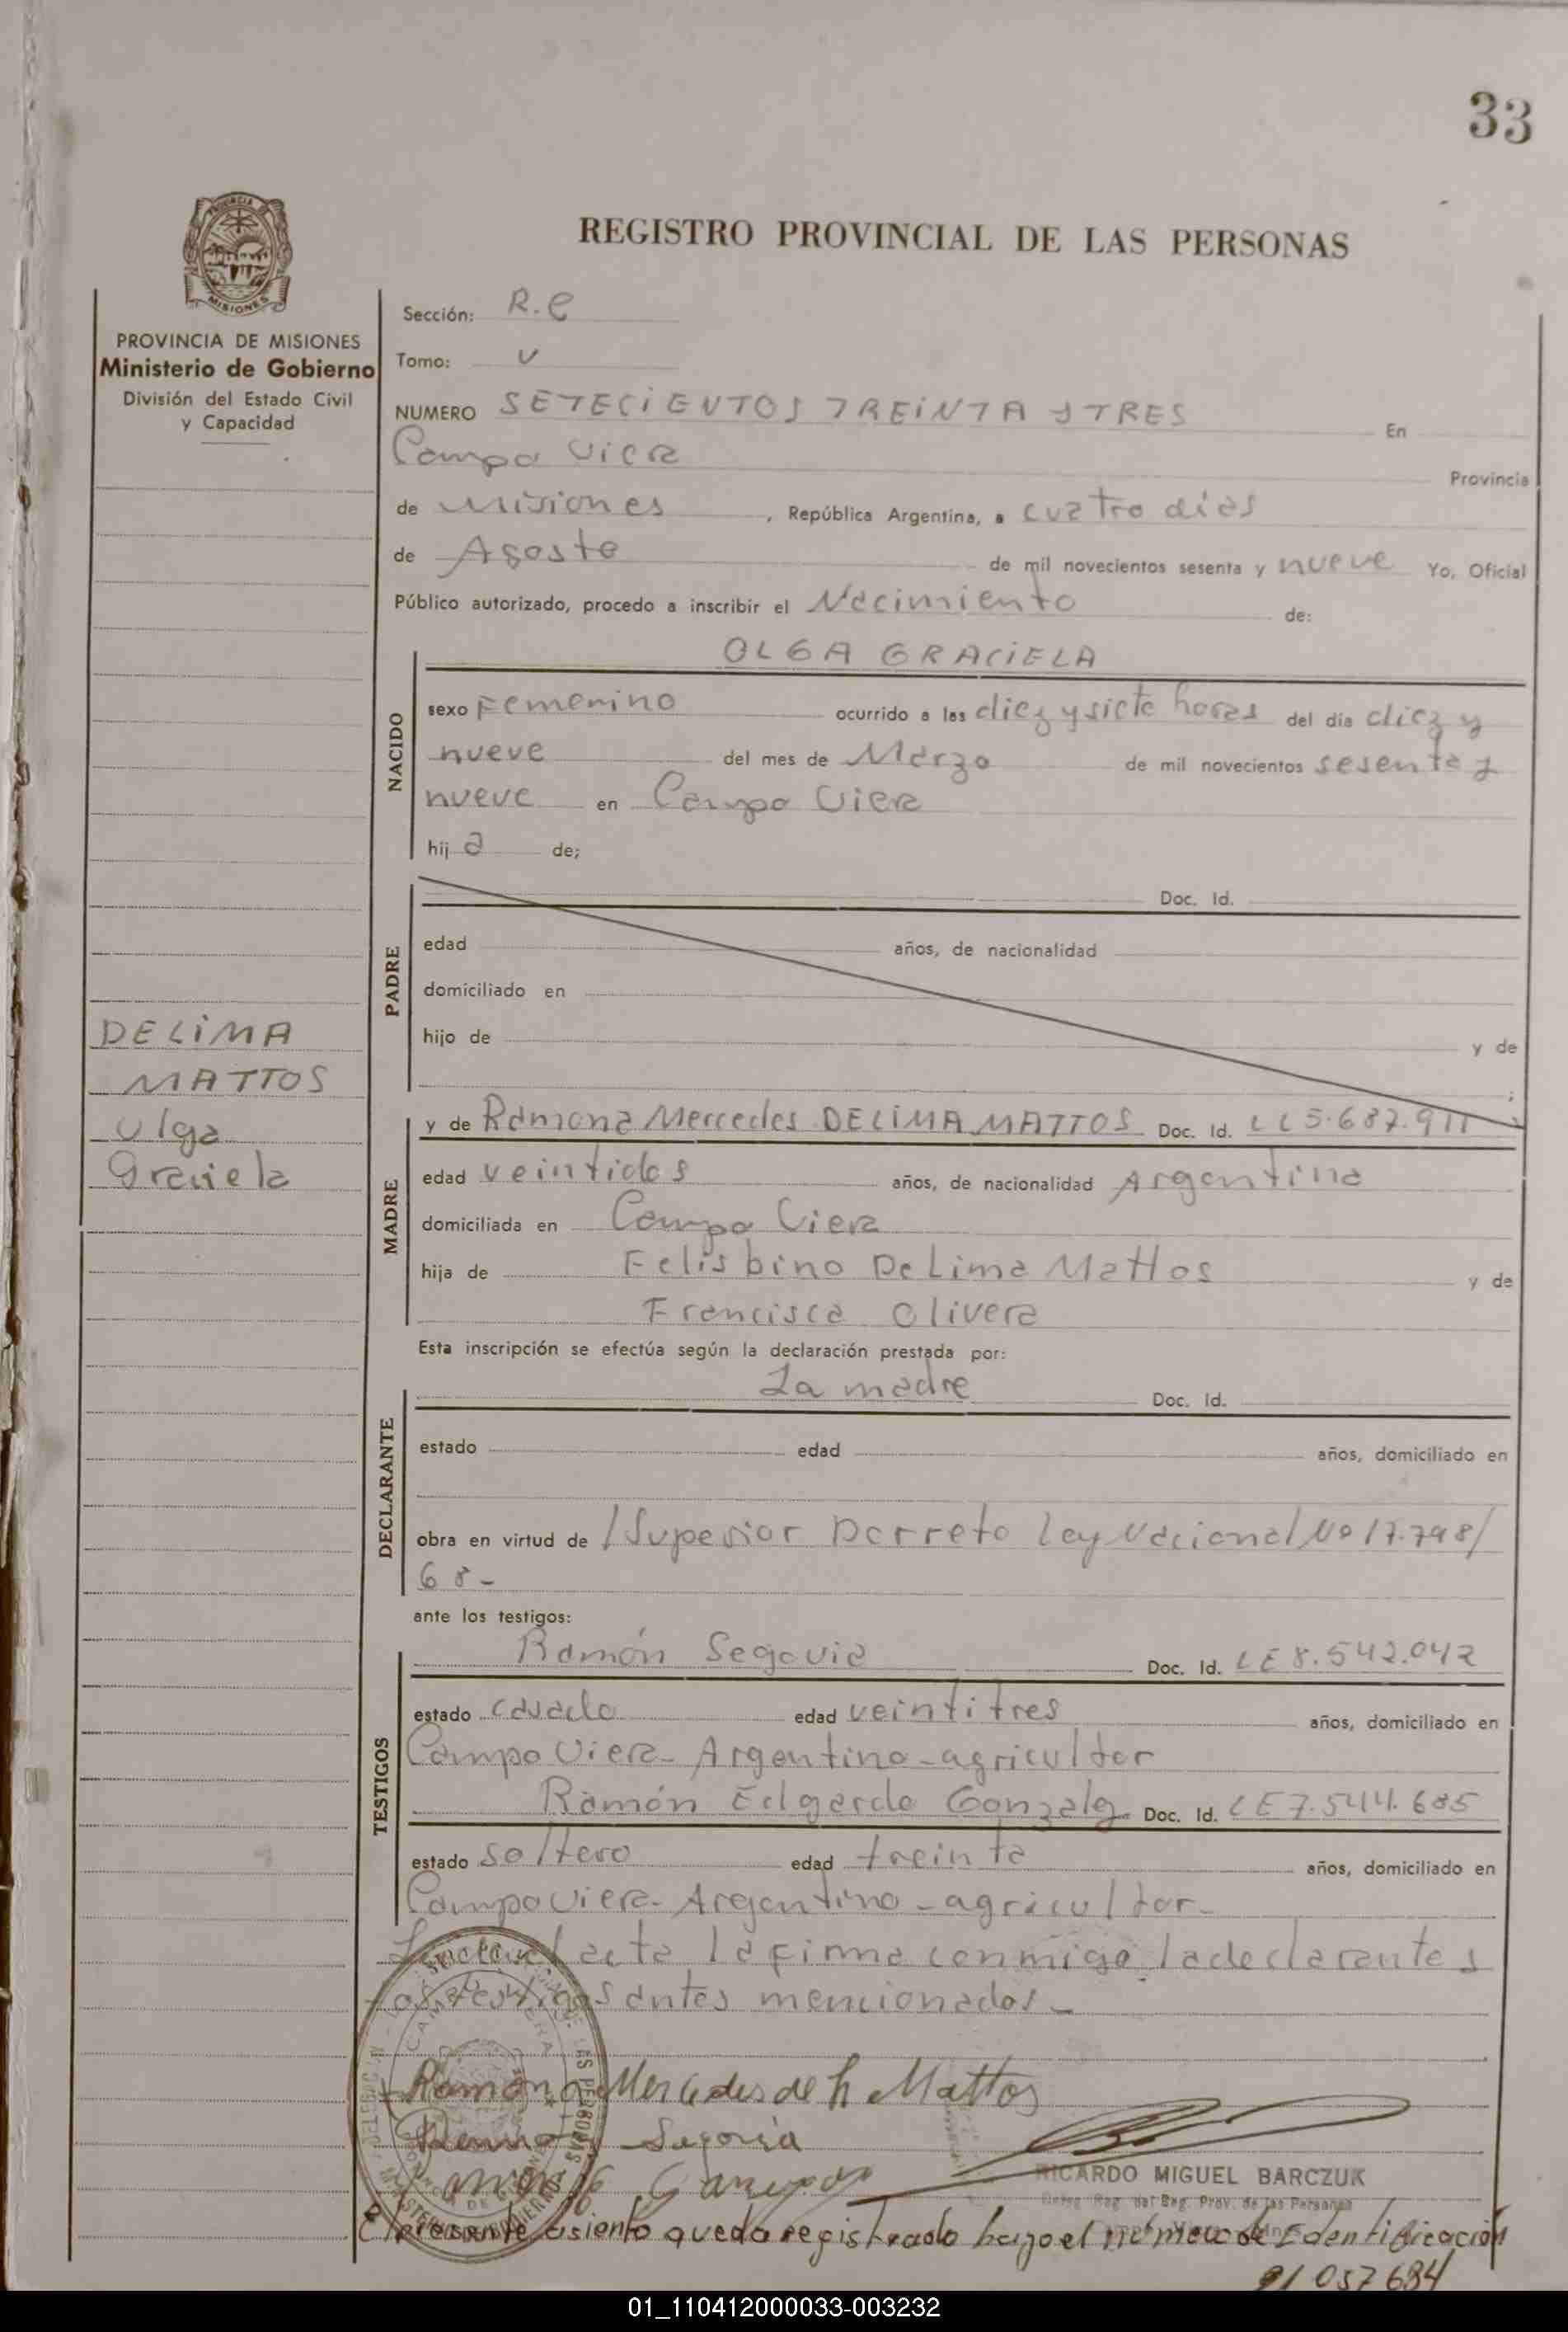 33
REGISTRO PROVINCIAL DE LAS PERSONAS
PROVINCIA DE
MISIONES
PROVINCIA DE MISIONES
Ministerio de Gobierno
División del Estado Civil
y Capacidad
DELIMA
MATTOS
Olga
Graciela
Sección: R.C
Tomo: V
NUMERO SETECIENTOS TREINTA Y TRES En
Campo Viera Provincia
de Misiones, República Argentina, a cuatro días
de Agosto de mil novecientos sesenta y nueve Yo, Oficial
Público autorizado, procedo a inscribir el Nacimiento de:
OLGA GRACIELA
NACIDO
sexo Femenino ocurrido a las diez y siete horas del día diez y
nueve del mes de Marzo de mil novecientos sesenta y
nueve en Campo Viera
hij a de;
PADRE
Doc. Id.
edad años, de nacionalidad
domiciliado en
hijo de y de
;
MADRE
y de Ramona Mercedes DELIMA MATTOS Doc. Id. LC 5.687.911
edad veintidos años, de nacionalidad Argentina
domiciliada en Campo Viera
hija de Felisbino DeLima Mattos y de
Francisca Olivera
Esta inscripción se efectúa según la declaración prestada por:
DECLARANTE
La madre Doc. Id.
estado edad años, domiciliado en
obra en virtud de /Superior Decreto Ley Nacional Nº 17.748/
68-
ante los testigos:
TESTIGOS
Ramón Segovia Doc. Id. LE 8.542.042
estado casado edad veintitres años, domiciliado en
Campo Viera- Argentino-agricultor
Ramón Edgardo Gonzalez Doc. Id. LE 7.544.685
estado soltero edad treinta años, domiciliado en
Campo Viera- Argentino-agricultor-
acta la firma conmigo la declarante y
los testigos antes mencionados-
CAMPO VIERA
Ramona Mercedes de L Mattos
Segovia
RICARDO MIGUEL BARCZUK
Reg. del Reg. Prov. de las Personas
El presente asiento queda registrado bajo el numero de Identificación
21 057 684
01_110412000033-003232